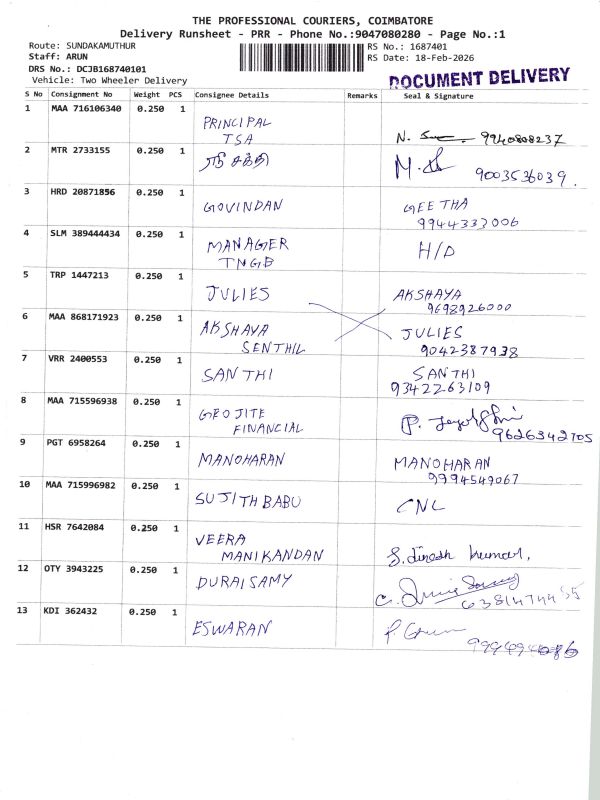 THE PROFESSIONAL COURIERS, COIMBATORE
Delivery Runsheet - PRR - Phone No.:9047080280 - Page No.:1
Route: SUNDAKAMUTHUR
RS No.: 1687401
Staff: ARUN
RS Date: 18-Feb-2026
DRS No.: DCJB168740101
Vehicle: Two Wheeler Delivery
DOCUMENT DELIVERY
S No Consignment No Weight PCS Consignee Details Remarks Seal & Signature
1 MAA 716106340 0.250 1 PRINCIPAL
TSA N. 9940808237
2 MTR 2733155 0.250 1 ஸ்ரீ சக்தி 9003536039.
3 HRD 20871856 0.250 1 GOVINDAN GEETHA
9944333006
4 SLM 389444434 0.250 1 MANAGER H/D
TNGB
5 TRP 1447213 0.250 1 JULIES AKSHAYA
9698926000
6 MAA 868171923 0.250 1 AKSHAYA JULIES
SENTHIL 9042387938
7 VRR 2400553 0.250 1 SANTHI SANTHI
9342263109
8 MAA 715596938 0.250 1 GEOJITE
FINANCIAL 9626342705
9 PGT 6958264 0.250 1 MANOHARAN MANOHARAN
9994549067
10 MAA 715996982 0.250 1 SUJITH BABU CNL
11 HSR 7642084 0.250 1 VEERA
MANIKANDAN S. dinesh kumar.
12 OTY 3943225 0.250 1 DURAISAMY
13 KDI 362432 0.250 1 ESWARAN